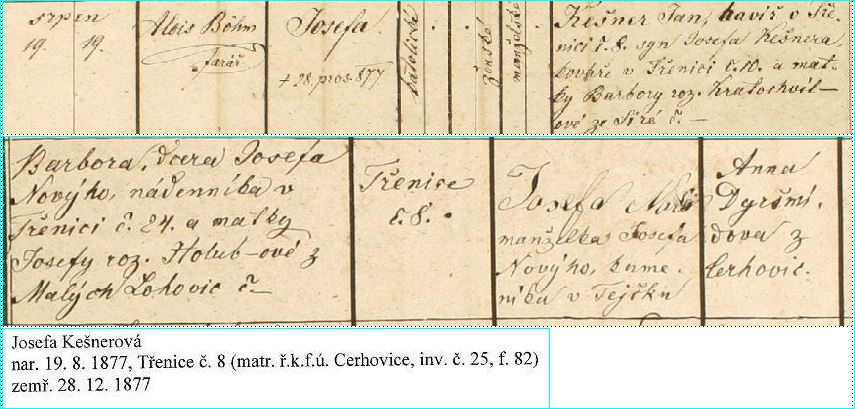 srpen
19. 19.
Alois Böhm
farář
Josefa
+ 28. pros. 877
katolické
ženské
manželské
Kešner Jan, havíř v Tře-
nici č. 8. syn Josefa Kešnera
kováře v Třenici č. 10. a mat-
ky Barbory roz. Kratochvil-
ové ze Siré č. –
Barbora, dcera Josefa
Novýho, nádenníka v
Třenici č. 24. a matky
Josefy roz. Holub-ové z
Malých Lohovic č. –
Třenice
č. 8.
Josefa
manželka Josefa
Novýho, kame-
níka v Tejčku
Anna
Dyršmí-
dova z
Cerhovic.
Josefa Kešnerová
nar. 19. 8. 1877, Třenice č. 8 (matr. ř.k.f.ú. Cerhovice, inv. č. 25, f. 82)
zemř. 28. 12. 1877